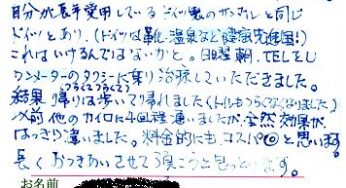 自分が長年愛用しているドイツ製のサンダルと同じ
ドイツとあり、(ドイツは靴、温泉など健康先進国!)
これはいけるんではないかと。日曜朝、TELをし
ワンメーターのタクシーに乗り治療していただきました。
つらくてつらくて
結果、帰りは歩いて帰れました(トルもつらくなくなりました)
以前他のカイロに4回程通いましたが、全然効果が
はっきり違いました。料金的にも、コスパ◎と思います。
長くおつきあいさせて頂こうと思っています。
お名前